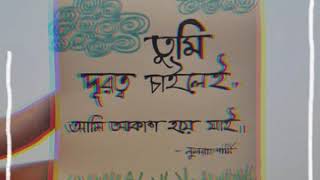 তুমি
দূরত্ব চাইলেই,
আমি আকাশ হয়ে যাই।।